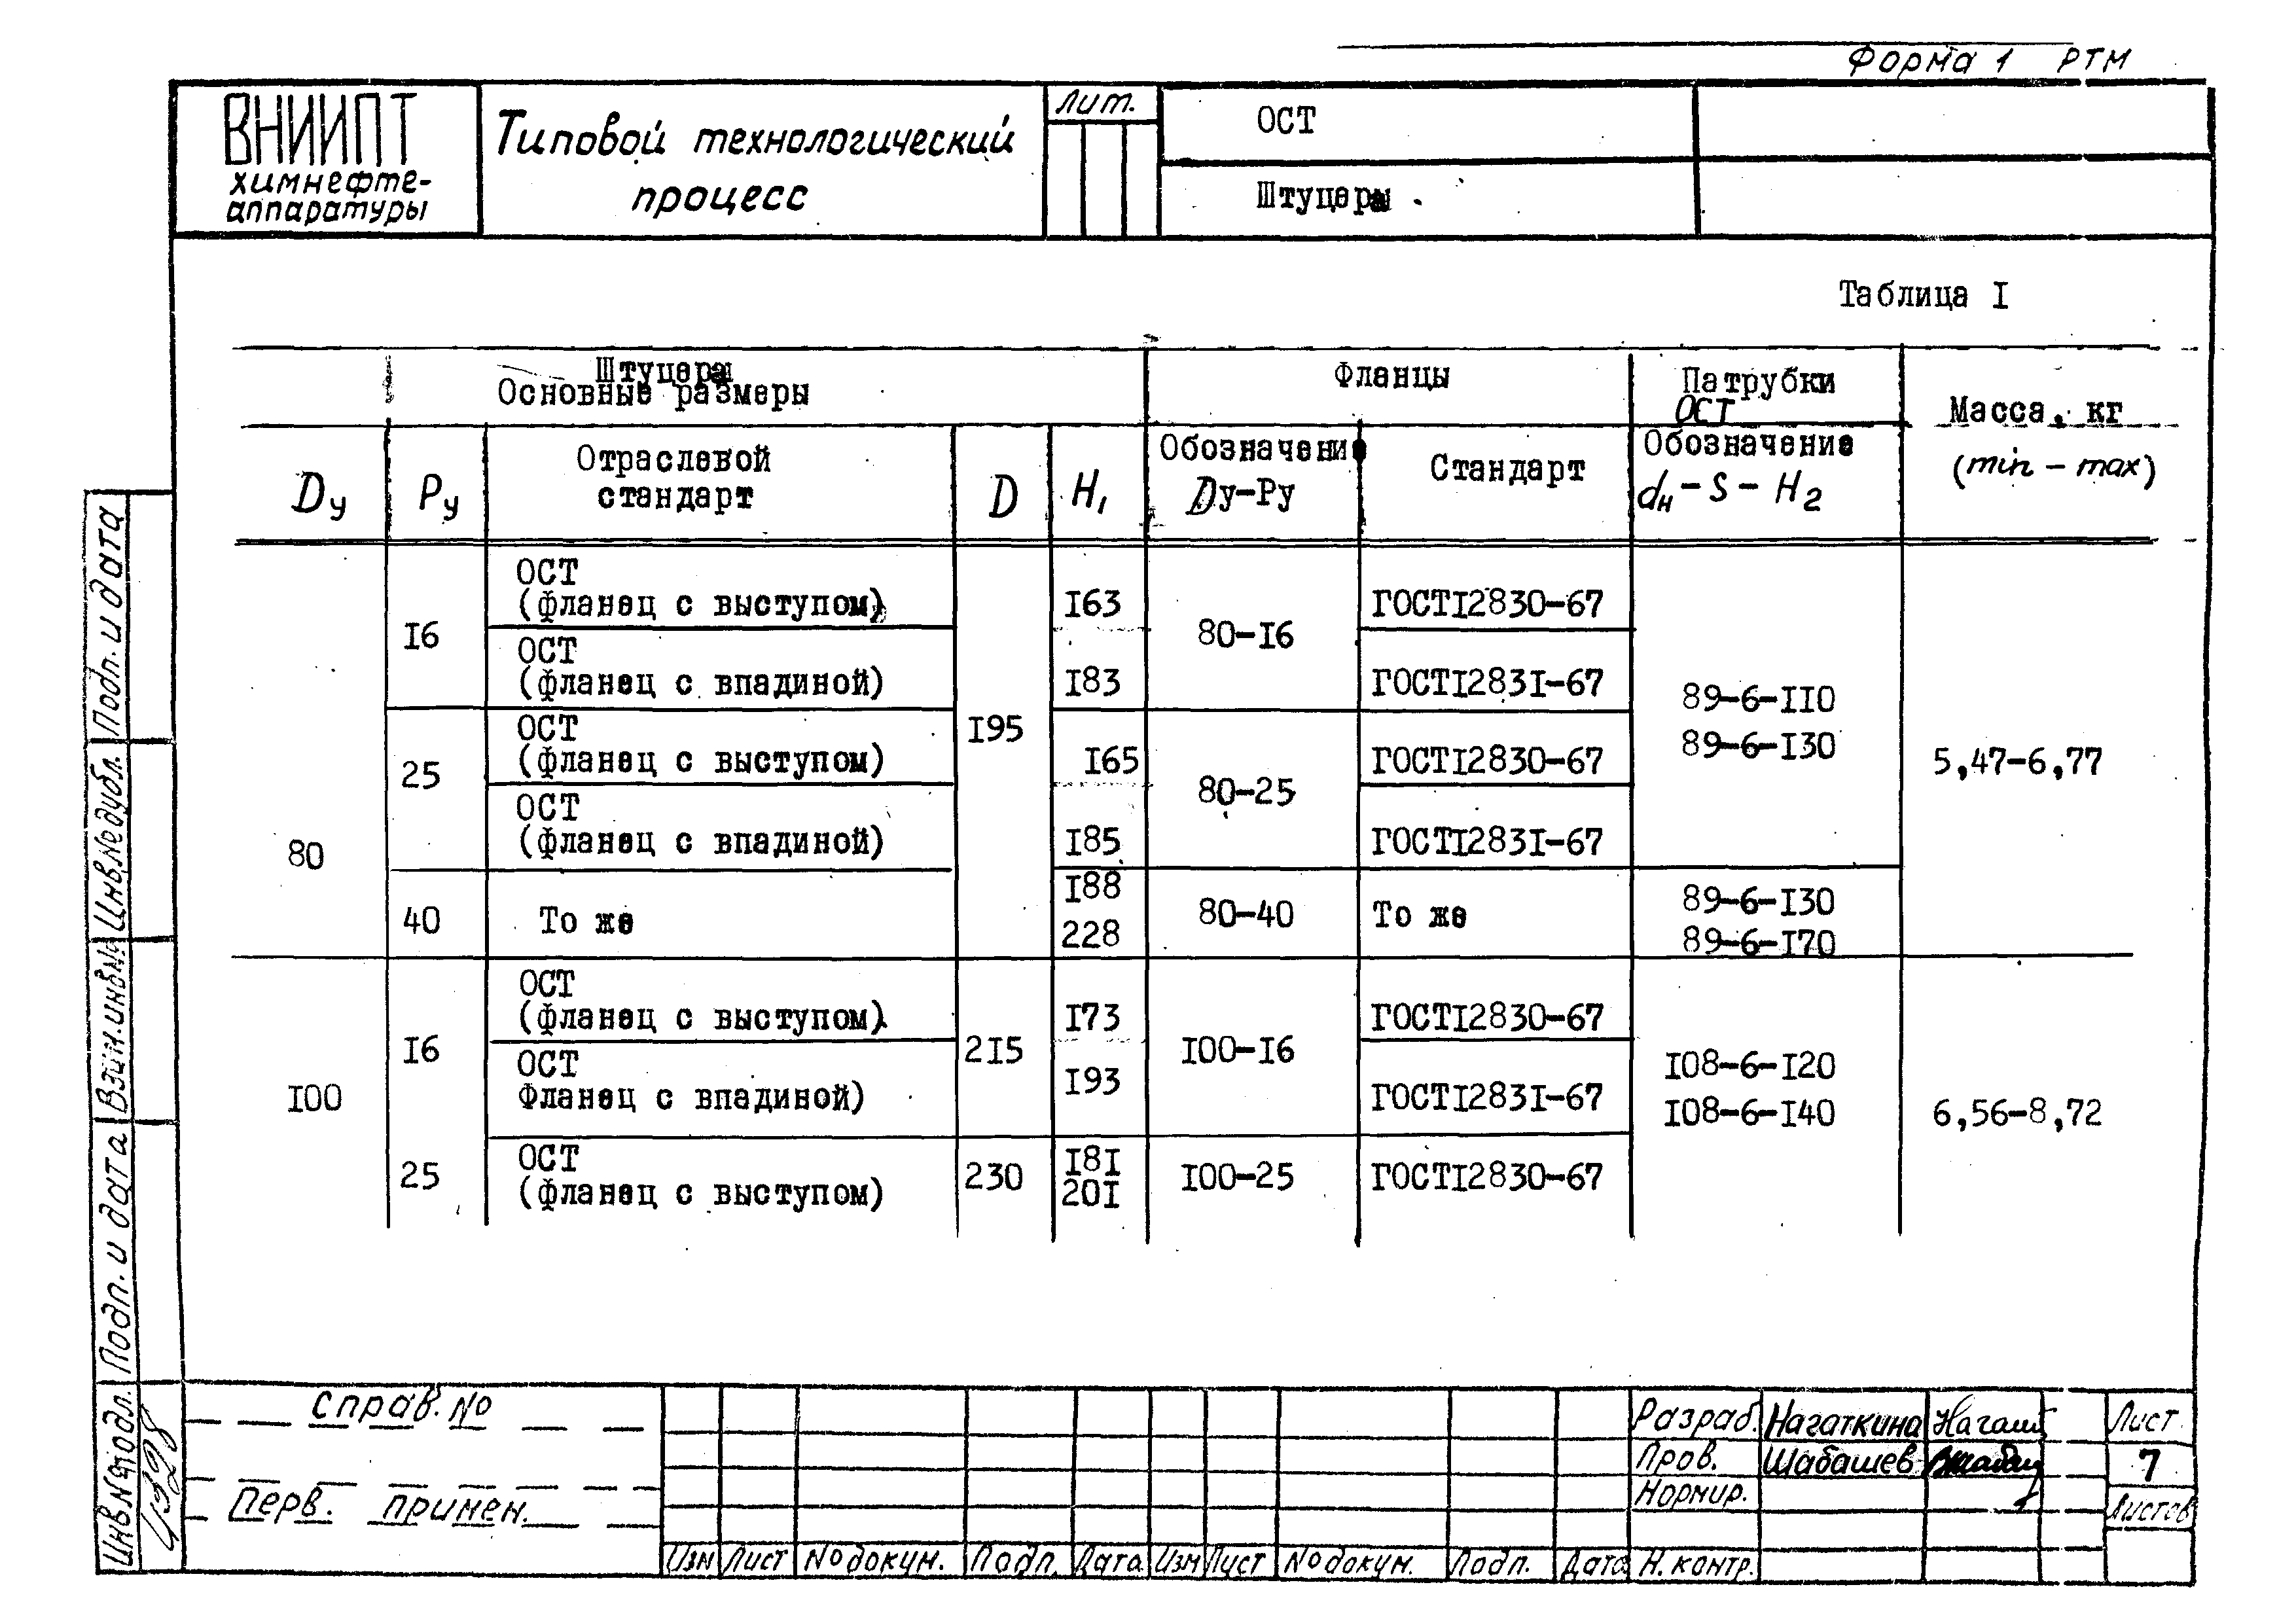 Форма 1 РТМ
ВНИИПТ
химнефте-
аппаратуры
Типовой технологический
процесс
Лит.
ОСТ
Штуцеры
Таблица I
Штуцеры
Основные размеры
Фланцы
Патрубки
ОСТ
Масса, кг
(min - max)
Dу
Pу
Отраслевой
стандарт
D
H₁
Обозначение
Dу-Pу
Стандарт
Обозначение
dн - S - H₂
80
I6
ОСТ
(фланец с выступом)
I95
I63
80-I6
ГОСТI2830-67
89-6-II0
89-6-I30
5,47-6,77
ОСТ
(фланец с впадиной)
I83
ГОСТI283I-67
25
ОСТ
(фланец с выступом)
I65
80-25
ГОСТI2830-67
ОСТ
(фланец с впадиной)
I85
ГОСТI283I-67
40
То же
I88
228
80-40
То же
89-6-I30
89-6-I70
I00
I6
ОСТ
(фланец с выступом)
2I5
I73
I00-I6
ГОСТI2830-67
I08-6-I20
I08-6-I40
6,56-8,72
ОСТ
Фланец с впадиной)
I93
ГОСТI283I-67
25
ОСТ
(фланец с выступом)
230
I8I
20I
I00-25
ГОСТI2830-67
Подп. и дата
Инв.№ дубл.
Взам.инв№
Подп. и дата
Инв.№подл.
справ. №
Перв. примен.
Изм Лист № докум. Подп. Дата Изм Лист № докум. Подп. Дата
Разраб. Нагаткина
Пров. Шабашев
Нормир.
Н. контр.
Лист
7
Листов